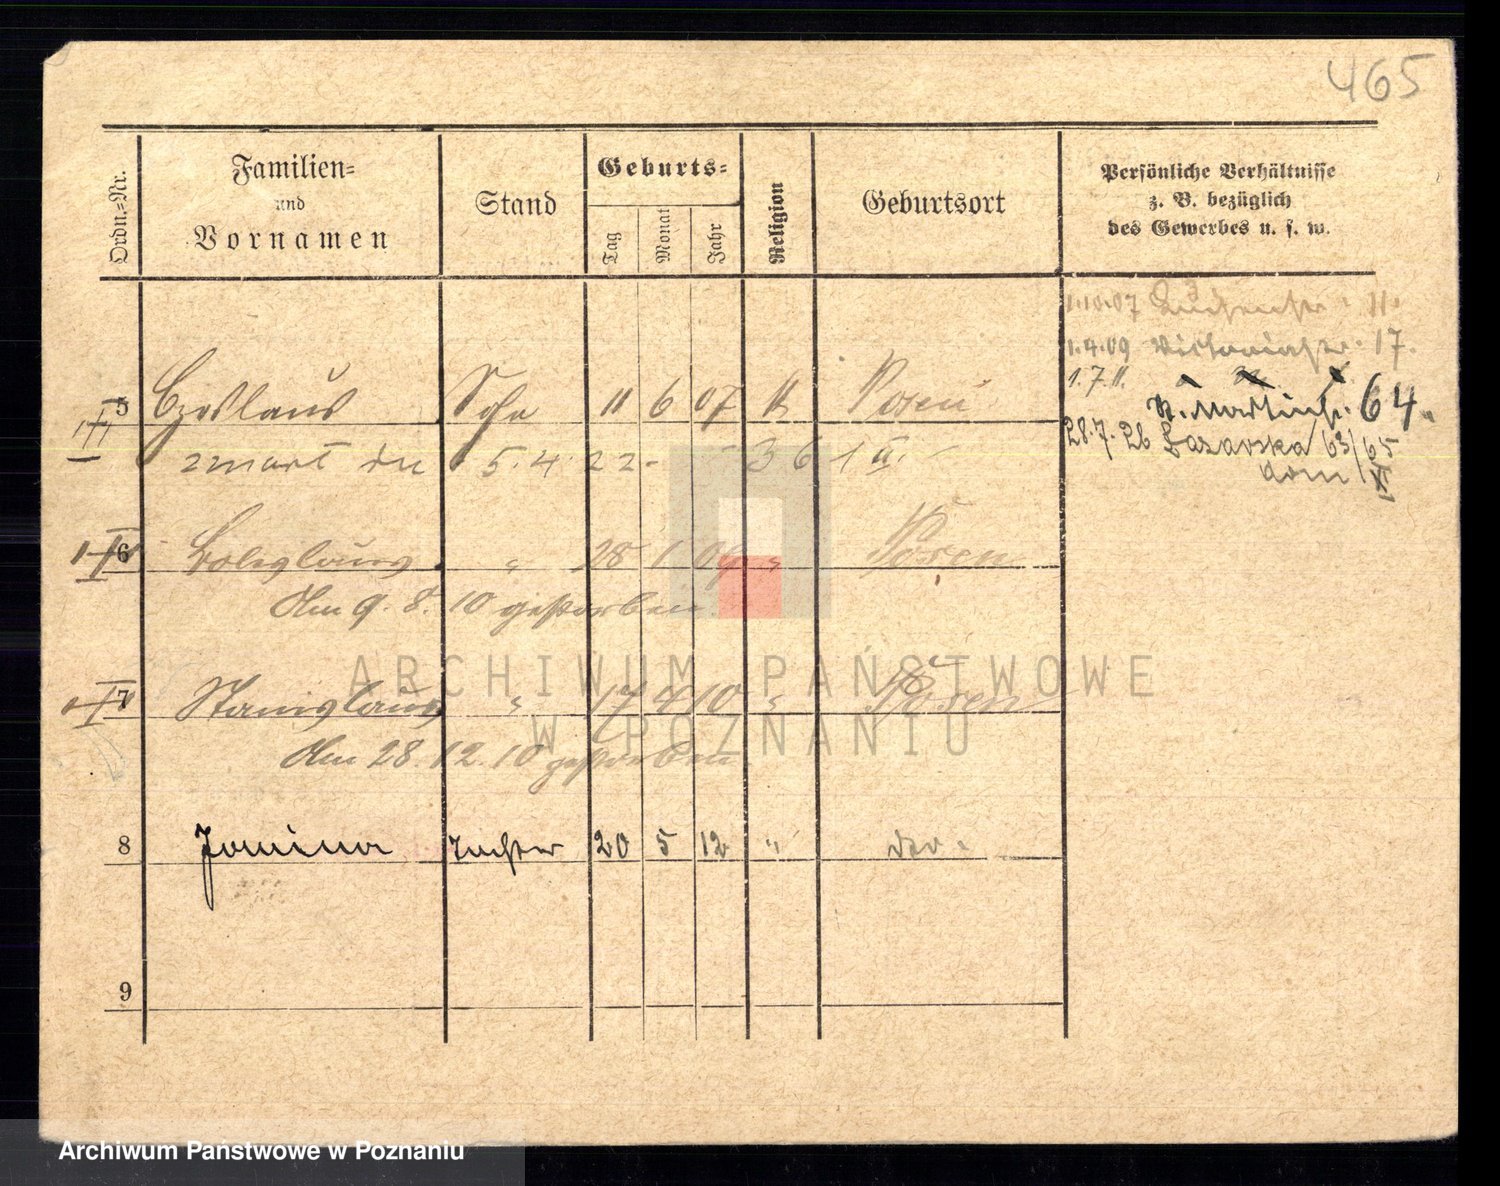 465
Ordn.-Nr.
Familien- und Vornamen
Stand
Geburts-
Tag Monat Jahr
Religion
Geburtsort
Persönliche Verhältnisse
z. B. bezüglich
des Gewerbes u. s. w.
1.10.07 11.
1.4.09 Victoriastr. 17.
1.7.11.
St. Martinstr. 64.
28.7.26 Łazarska 63/65
dom
5 Czeslaus Sohn 11 6 07 k Posen
zmarł dn 5.4.22.
6 Boleslaus " 28 1 09 " Posen
Am 9.8.10 gestorben
7 Stanislaus " 17 4 10 " Posen
Am 28.12.10 gestorben
8 Janina Tochter 20 5 12 "
9
ARCHIWUM PAŃSTWOWE
W POZNANIU
Archiwum Państwowe w Poznaniu